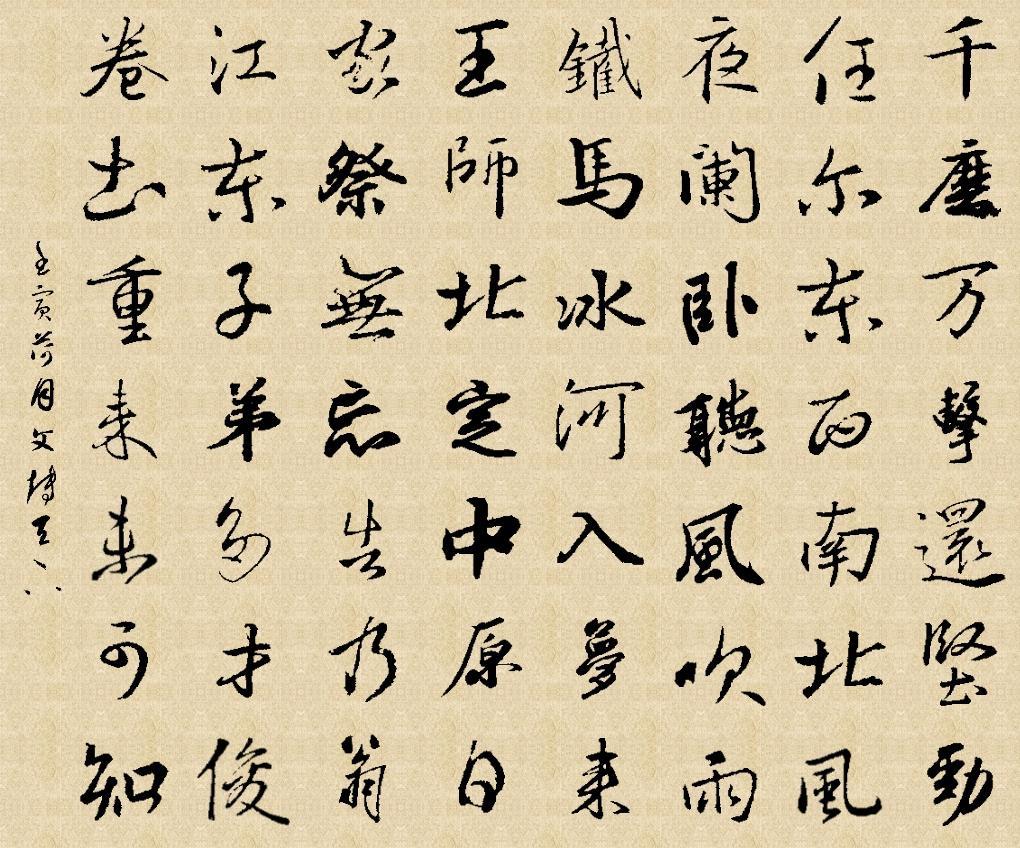 千磨万擊還堅勁
任尔东西南北風
夜闌卧聽風吹雨
鐵馬冰河入夢来
王師北定中原日
家祭無忘告乃翁
江东子弟多才俊
卷土重来未可知
壬寅荷月文博